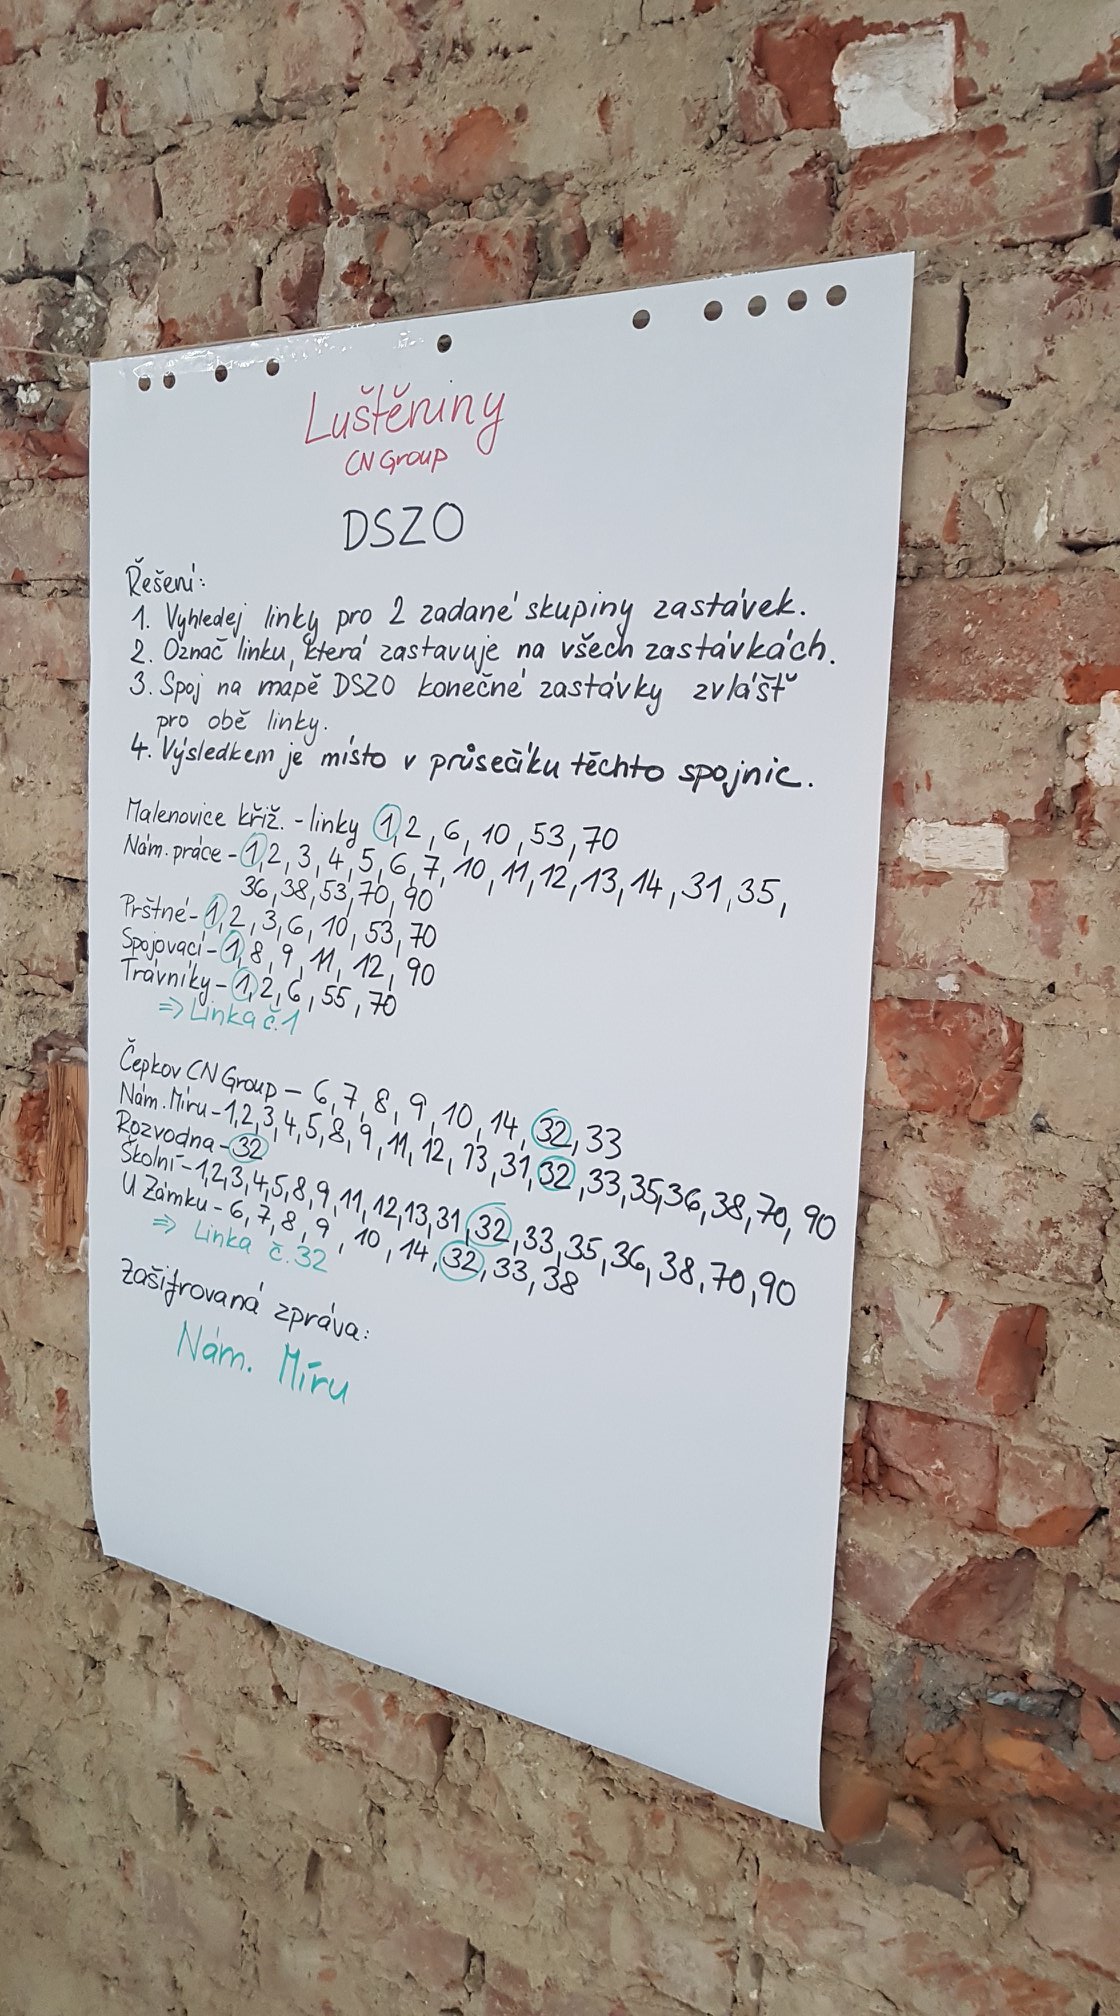 Luštěniny
CN Group
DSZO
Řešení:
1. Vyhledej linky pro 2 zadané skupiny zastávek.
2. Označ linku, která zastavuje na všech zastávkách.
3. Spoj na mapě DSZO konečné zastávky zvlášť
pro obě linky.
4. Výsledkem je místo v průsečíku těchto spojnic.
Malenovice křiž. - linky 1, 2, 6, 10, 53, 70
Nám. práce - 1, 2, 3, 4, 5, 6, 7, 10, 11, 12, 13, 14, 31, 35,
36, 38, 53, 70, 90
Prštné - 1, 2, 3, 6, 10, 53, 70
Spojovací - 1, 8, 9, 11, 12, 90
Trávníky - 1, 2, 6, 55, 70
=> Linka č. 1
Čepkov CN Group - 6, 7, 8, 9, 10, 14, 32, 33
Nám. Míru - 1, 2, 3, 4, 5, 8, 9, 11, 12, 13, 31, 32, 33, 35, 36, 38, 70, 90
Rozvodna - 32
Školní - 1, 2, 3, 4, 5, 8, 9, 11, 12, 13, 31, 32, 33, 35, 36, 38, 70, 90
U Zámku - 6, 7, 8, 9, 10, 14, 32, 33, 38
=> Linka č. 32
Zašifrovaná zpráva:
Nám. Míru